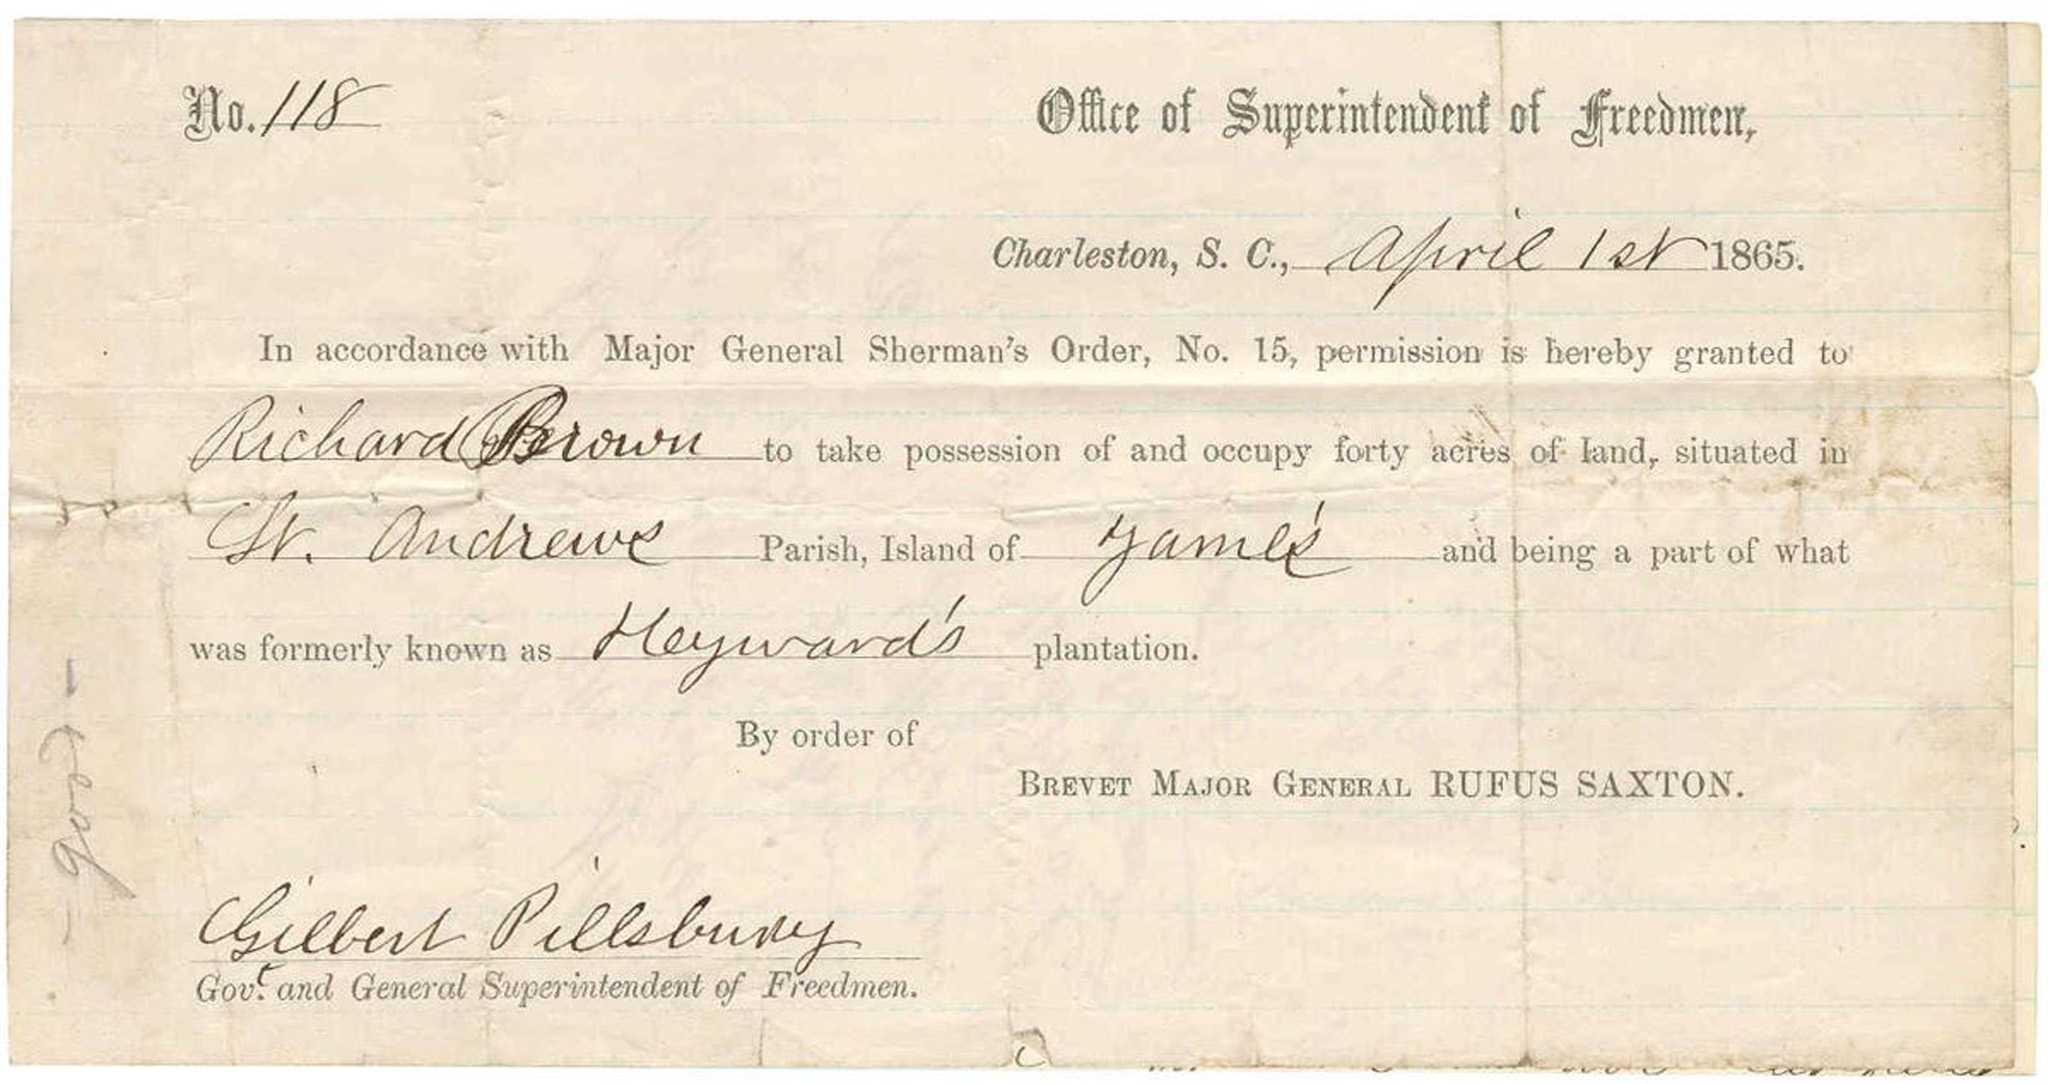 No. 118
Office of Superintendent of Freedmen,
Charleston, S. C., April 1st 1865.
In accordance with Major General Sherman's Order, No. 15, permission is hereby granted to
Richard Brown to take possession of and occupy forty acres of land, situated in
St. Andrews Parish, Island of James and being a part of what
was formerly known as Heyward's plantation.
By order of
BREVET MAJOR GENERAL RUFUS SAXTON.
Gilbert Pillsbury
Govt. and General Superintendent of Freedmen.
- good -